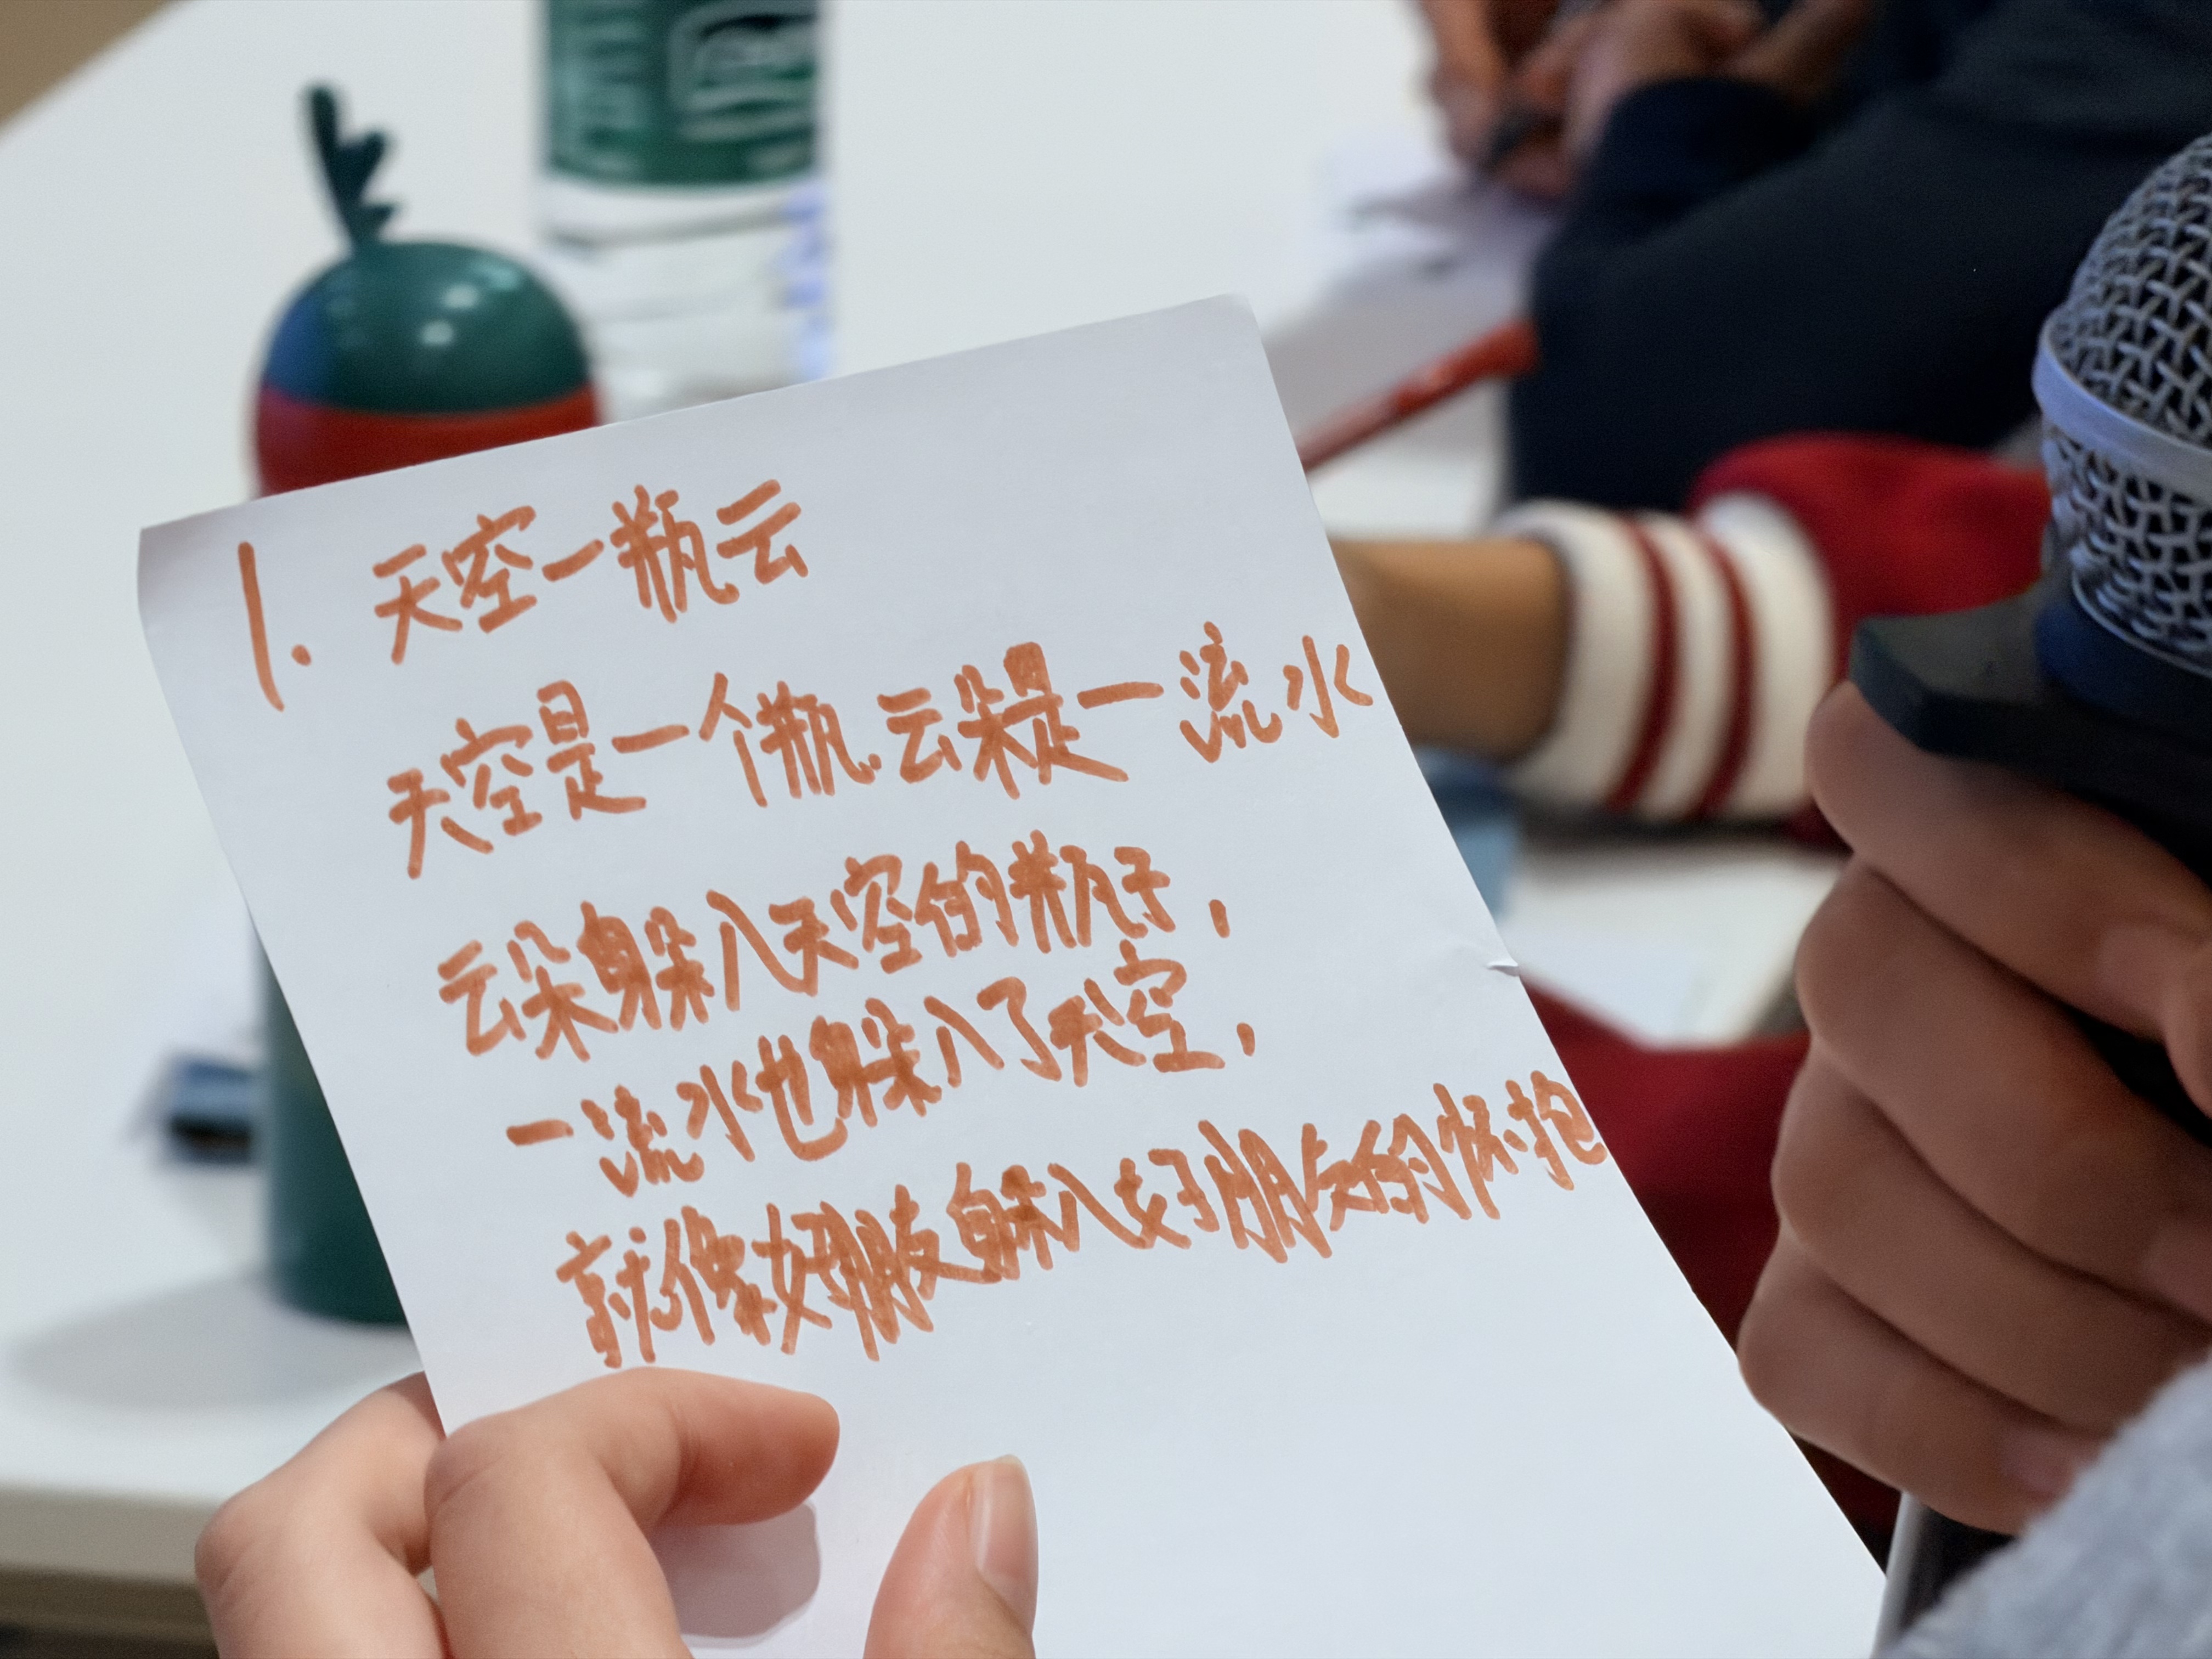 1. 天空一瓶云
天空是一个瓶.云朵是一流水
云朵躲入天空的瓶子,
一流水也躲入了天空,
就像好朋友躲入好朋友的怀抱